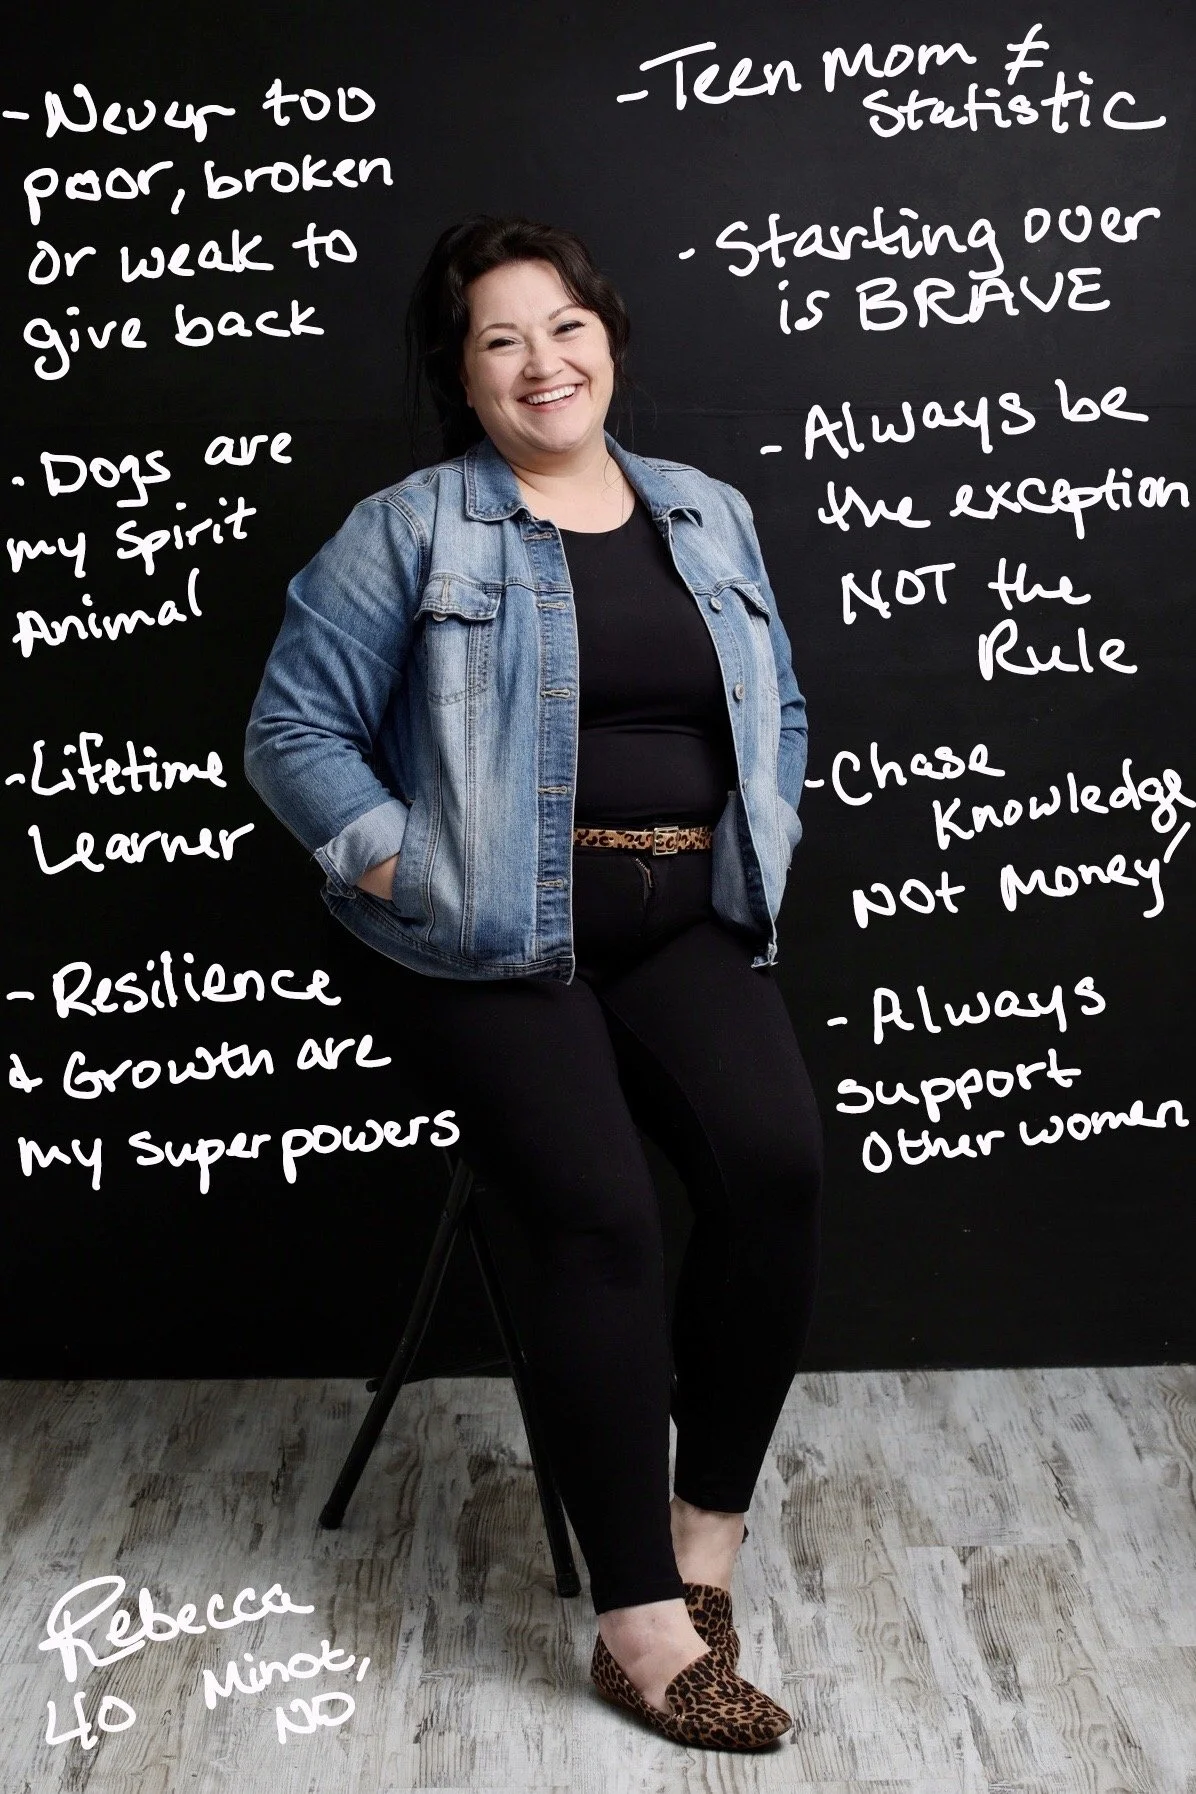 - Never too
poor, broken
or weak to
give back
- Dogs are
my Spirit
Animal
- Lifetime
Learner
- Resilience
& Growth are
my superpowers
- Teen mom ≠
Statistic
- Starting over
is BRAVE
- Always be
the exception
NOT the
Rule
- Chase
Knowledge,
NOt money
- Always
support
Other women
Rebecca
40 Minot,
ND